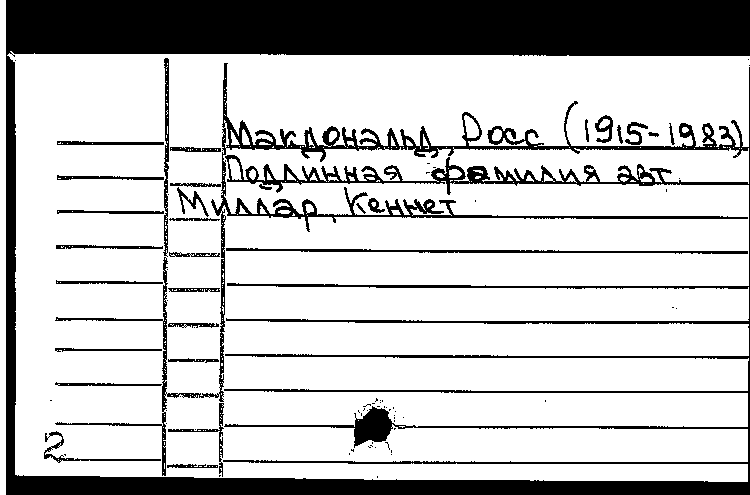 Макдональд, Росс (1915-1983)
Подлинная фамилия авт.
Миллар, Кеннет
2